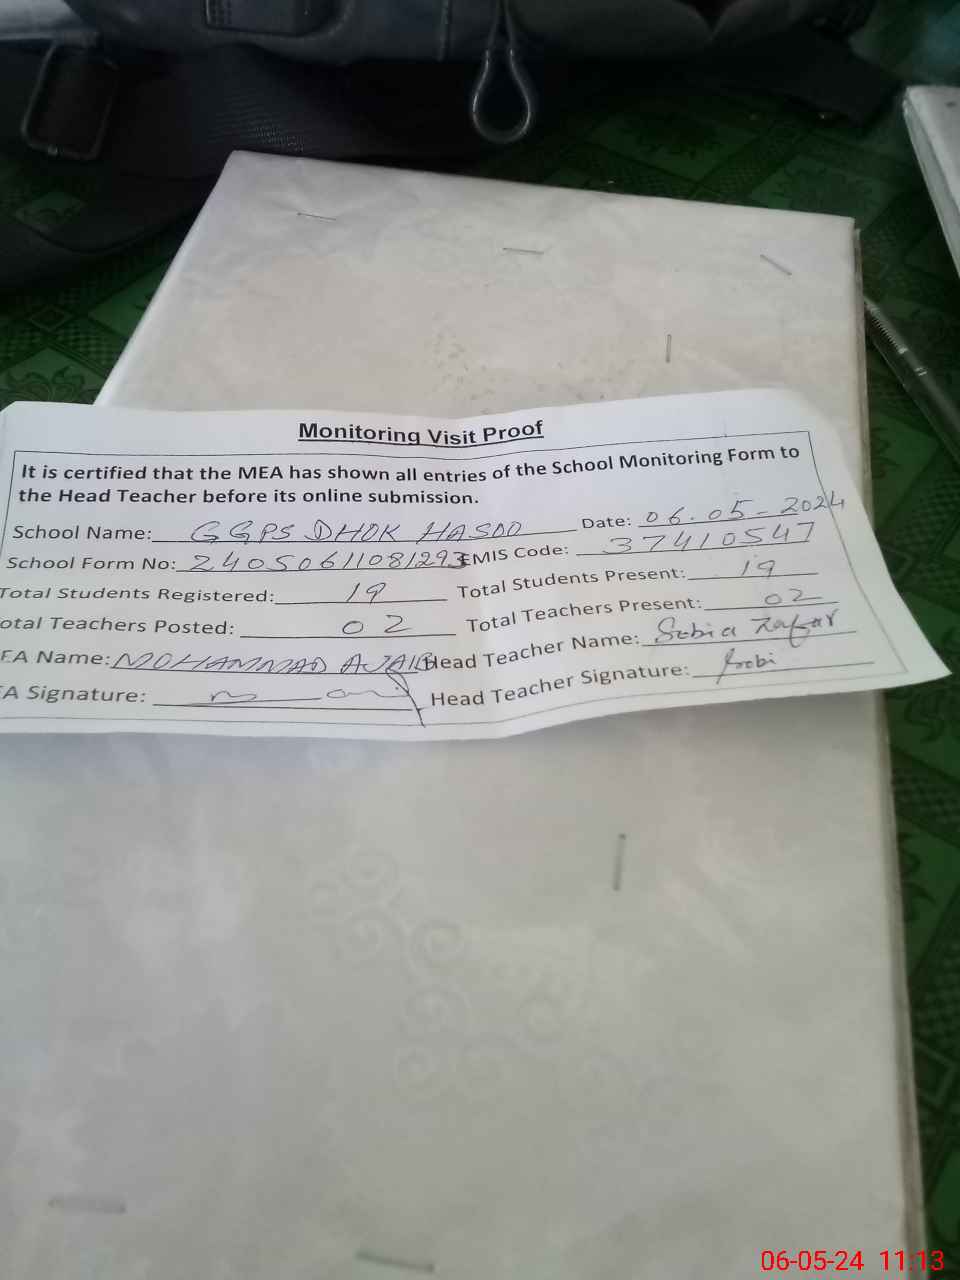 Monitoring Visit Proof
It is certified that the MEA has shown all entries of the School Monitoring Form to
the Head Teacher before its online submission.
School Name: GGPS DHOK HASOO Date: 06.05-2024
School Form No: 24050611081293 EMIS Code: 37410547
Total Students Registered: 19 Total Students Present: 19
otal Teachers Posted: 02 Total Teachers Present: 02
EA Name: MOHAMMAD AJAIB Head Teacher Name: Sobia Zafar
EA Signature: Head Teacher Signature: Sobi
06-05-24 11:13